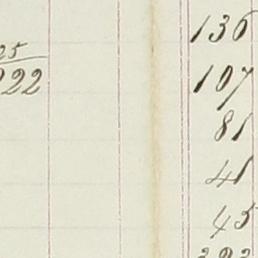 25
922
136
107
81
41
45